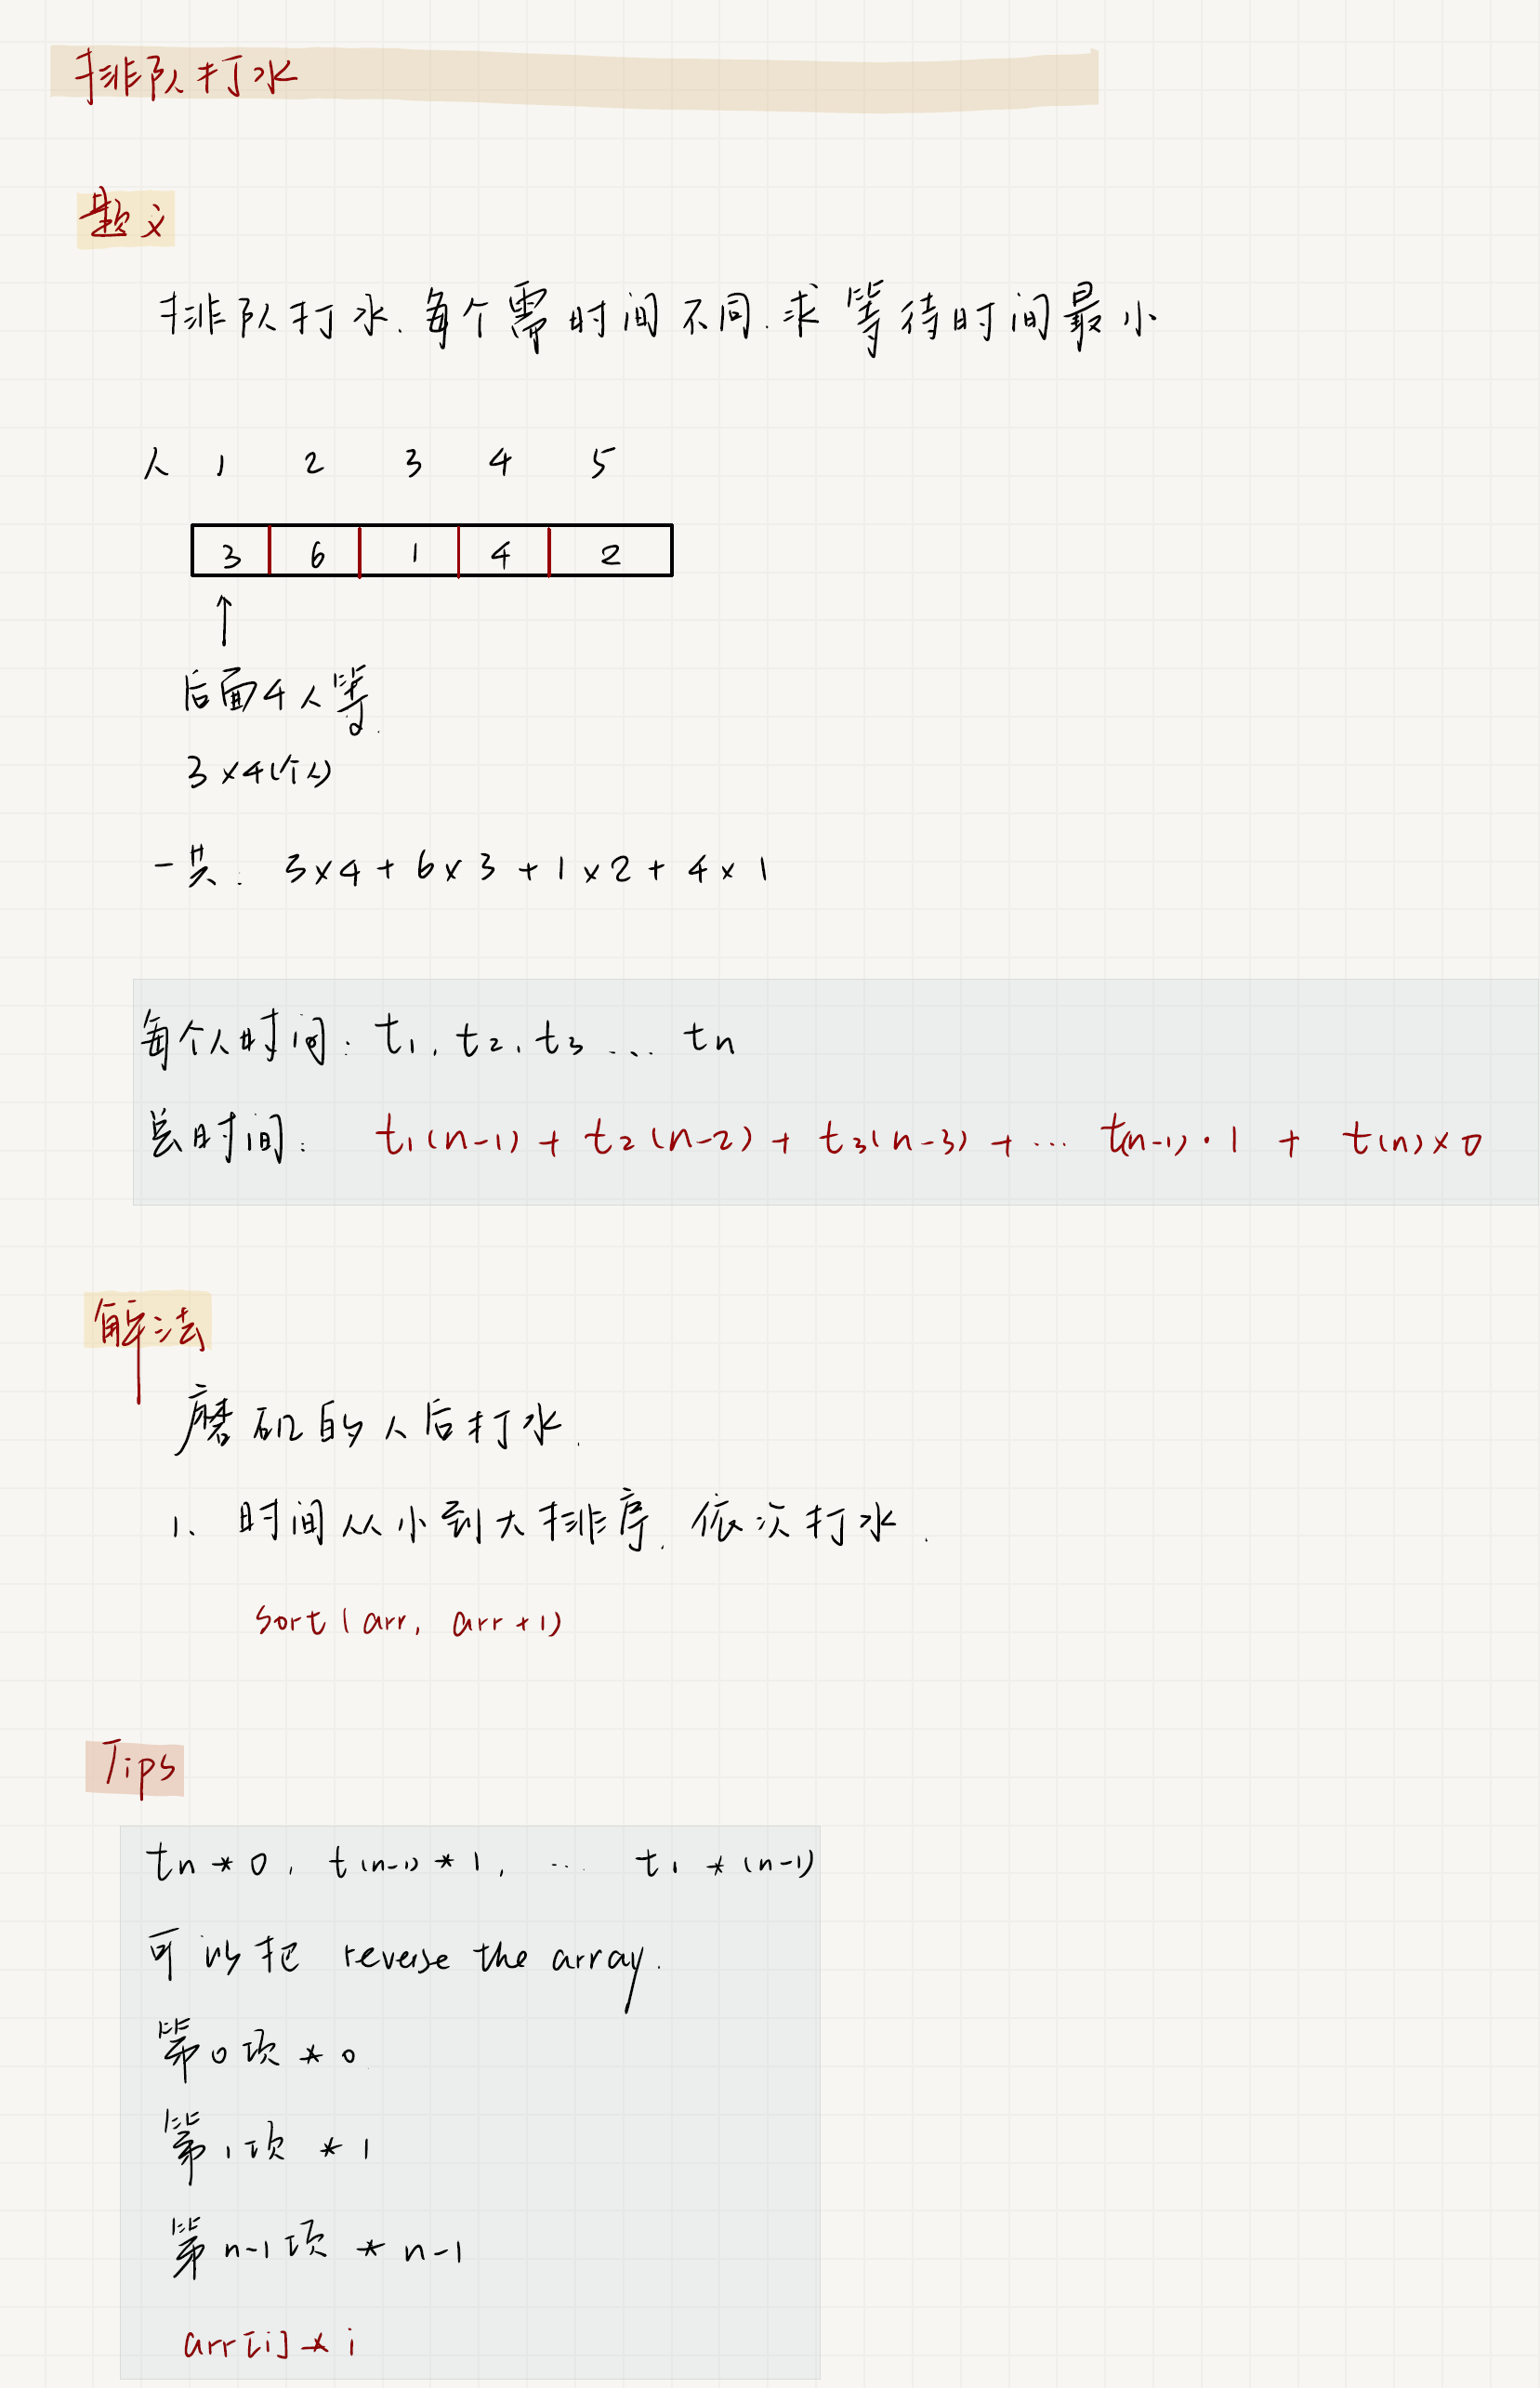 排队打水
题义
排队打水.每个需时间不同.求等待时间最小
人 1 2 3 4 5
3 6 1 4 2
↑
后面4人等.
3×4(个人)
一共: 3×4+6×3+1×2+4×1
每个人时间: t1, t2, t3 ... tn
总时间: t1(n-1) + t2(n-2) + t3(n-3) + ... t(n-1)·1 + t(n)×0
解法
磨矶的人后打水.
1、时间从小到大排序.依次打水.
sort(arr, arr+1)
Tips
tn*0, t(n-1)*1, ... t1*(n-1)
可以把 reverse the array.
第0项*0
第1项*1
第n-1项*n-1
arr[i]*i